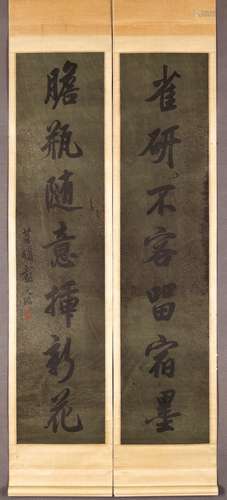 雀研不容留宿墨
膽瓶隨意揷新花